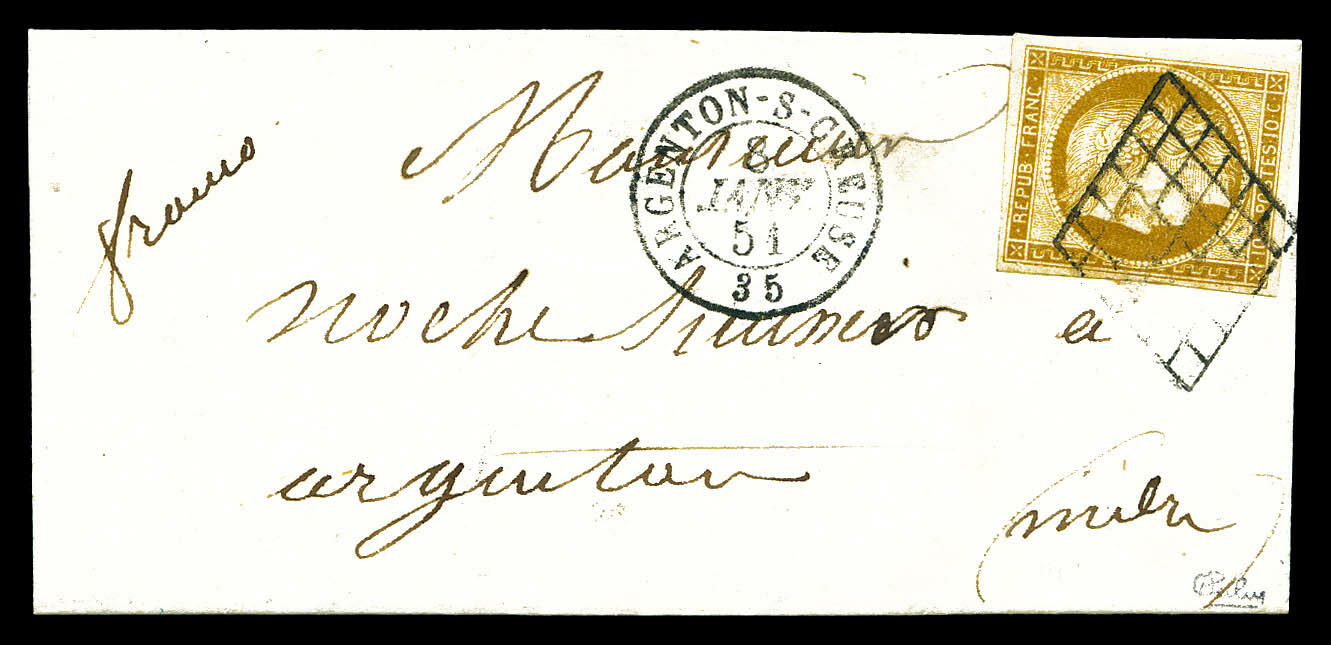 franco
Monsieur
ARGENTON-S-CREUSE
8
JANV.
51
35
REPUB · FRANC ·
10 · C
Roche huissier a
argenton
indre